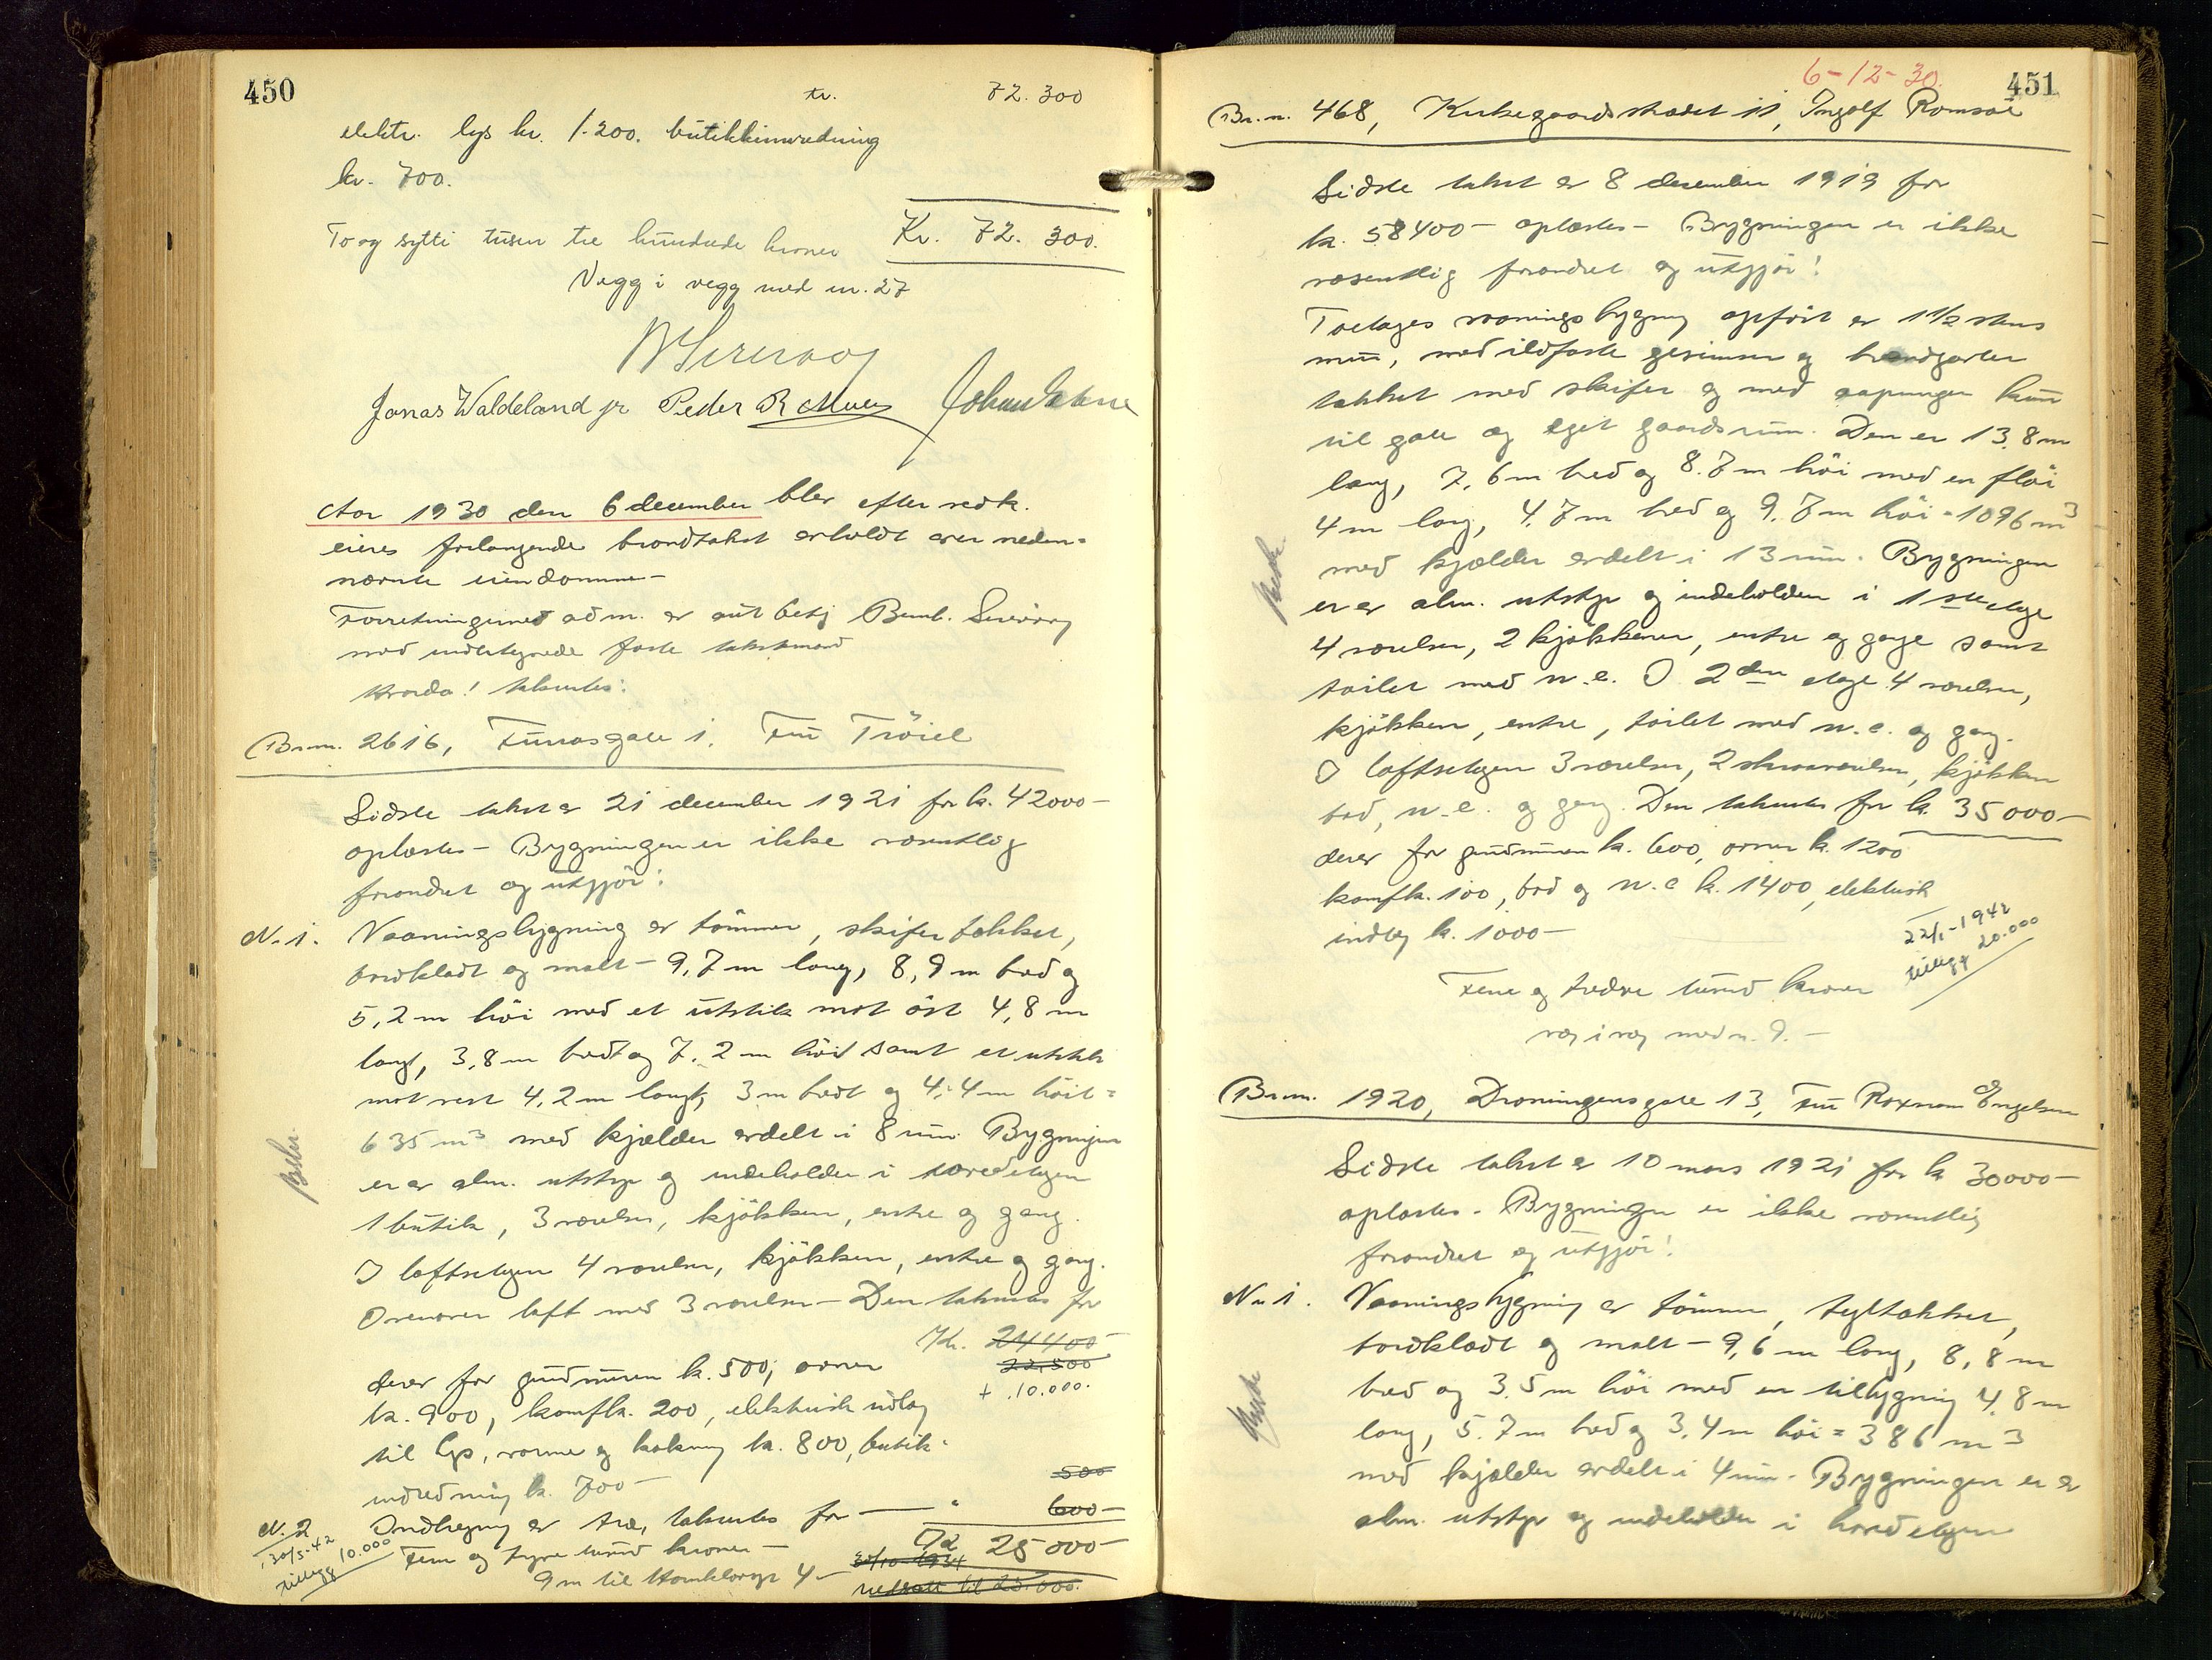 450
tr. 72.300
elektr. lys kr. 1.200. butikkinnredning
kr. 700.
To og sytti tusen tre hundrede kroner Kr. 72.300.
Vegg i vegg med nr. 27
Jonas Waldeland jr Peder R
Aar 1930 den 6 december blev efter vedk.
eieres forlangende brandtakst avholdt over neden-
nævnte eiendomme-
Forretningerne adm. av aut besj Bernh. Sirevaag
med undertegnede faste takstmænd
Hvorda! takseredes:
Br.nr. 2616, gate 1. Fru Tröiel
Sidste takst av 21 december 1921 for kr. 42000-
oplæstes- Bygningen er ikke væsentlig
forandret og utgjör:
Nr. 1. Vaaningsbygning av tömmer, skifertækket,
bordklædt og malt- 9,7 m lang, 8,9 m bred og
5,2 m höi med et utstik mot öst 4,8 m
langt, 3,8 m bredt og 7,2 m höit samt et utstik
mot vest 4,2 m langt, 3 m bredt og 4,4 m höit =
635 m3 med kjælder avdelt i 8 rum. Bygningen
er av alm. utstyr og indeholder i förstetagen
1 butik, 3 værelser, kjökken, entre og gang.
I loftsetagen 4 værelser, kjökken, entre og gang.
Ovenover loft med 3 værelser- Den takseres for
Kr. 24400-
22,500
+ 10.000.
derav for grundmuren kr. 500, ovner
kr. 900, komfkr. 200, elektrisk indlæg
til lys, varme og kokning kr. 800, butik-
indredning kr. 700-
500
Nr. 2 Indhegning av træ, takseres for - " 600-
30/5-42
tillegg 10.000
Fem og tyve tusind kroner- 25000-
30/10-1934
9 m til 4- nedsatt til 23.000.
6-12-30.
451
Br.nr. 468, Kirkegaardsstrædet 11, Ingolf Romsöe
Sidste takst av 8 december 1919 for
kr. 58400- oplæstes- Bygningen er ikke
væsentlig forandret og utgjör!
Toetages vaaningsbygning opfört av 1 1/2 stens
mur, med ildfaste gesimser og brandgavler
tækket med skifer og med aapninger kun
til gate og eget gaardsrum. Den er 13,8 m
lang, 7,6 m bred og 8,7 m höi med en flöi
4 m lang, 4,7 m bred og 9,7 m höi = 1096 m3
med kjælder avdelt i 13 rum. Bygningen
er av alm. utstyr og indeholder i 1ste etage
4 værelser, 2 kjökkener, entre og gange samt
toilet med w.c. I 2den etage 4 værelser,
kjökken, entre, toilet med w.c. og gang.
I loftsetagen 3 værelser, 2 skraaværelser, kjökken
bad, w.c. og gang. Den takseres for kr. 35000-
derav for grundmuren kr. 600, ovner kr. 1200
komfkr. 100, bad og w.c kr. 1400, elektrisk
indlæg kr. 1000-
22/1-1942
tillegg 20.000
Fem og tredve tusind kroner
væg i væg med nr. 9.-
Br.nr. 1920, Dronningensgate 13, Fru Engelsen
Sidste takst av 10 mars 1921 for kr 30000-
oplæstes. Bygningen er ikke væsentlig
forandret og utgjör!
Nr. 1. Vaaningsbygning av tömmer, tegltækket,
bordklædt og malt- 9,6 m lang, 8,8 m
bred og 3,5 m höi med en tilbygning 4,8 m
lang, 5,7 m bred og 3,4 m höi = 386 m3
med kjælder avdelt i 4 rum. Bygningen er av
alm. utstyr og indeholder i hovedetagen